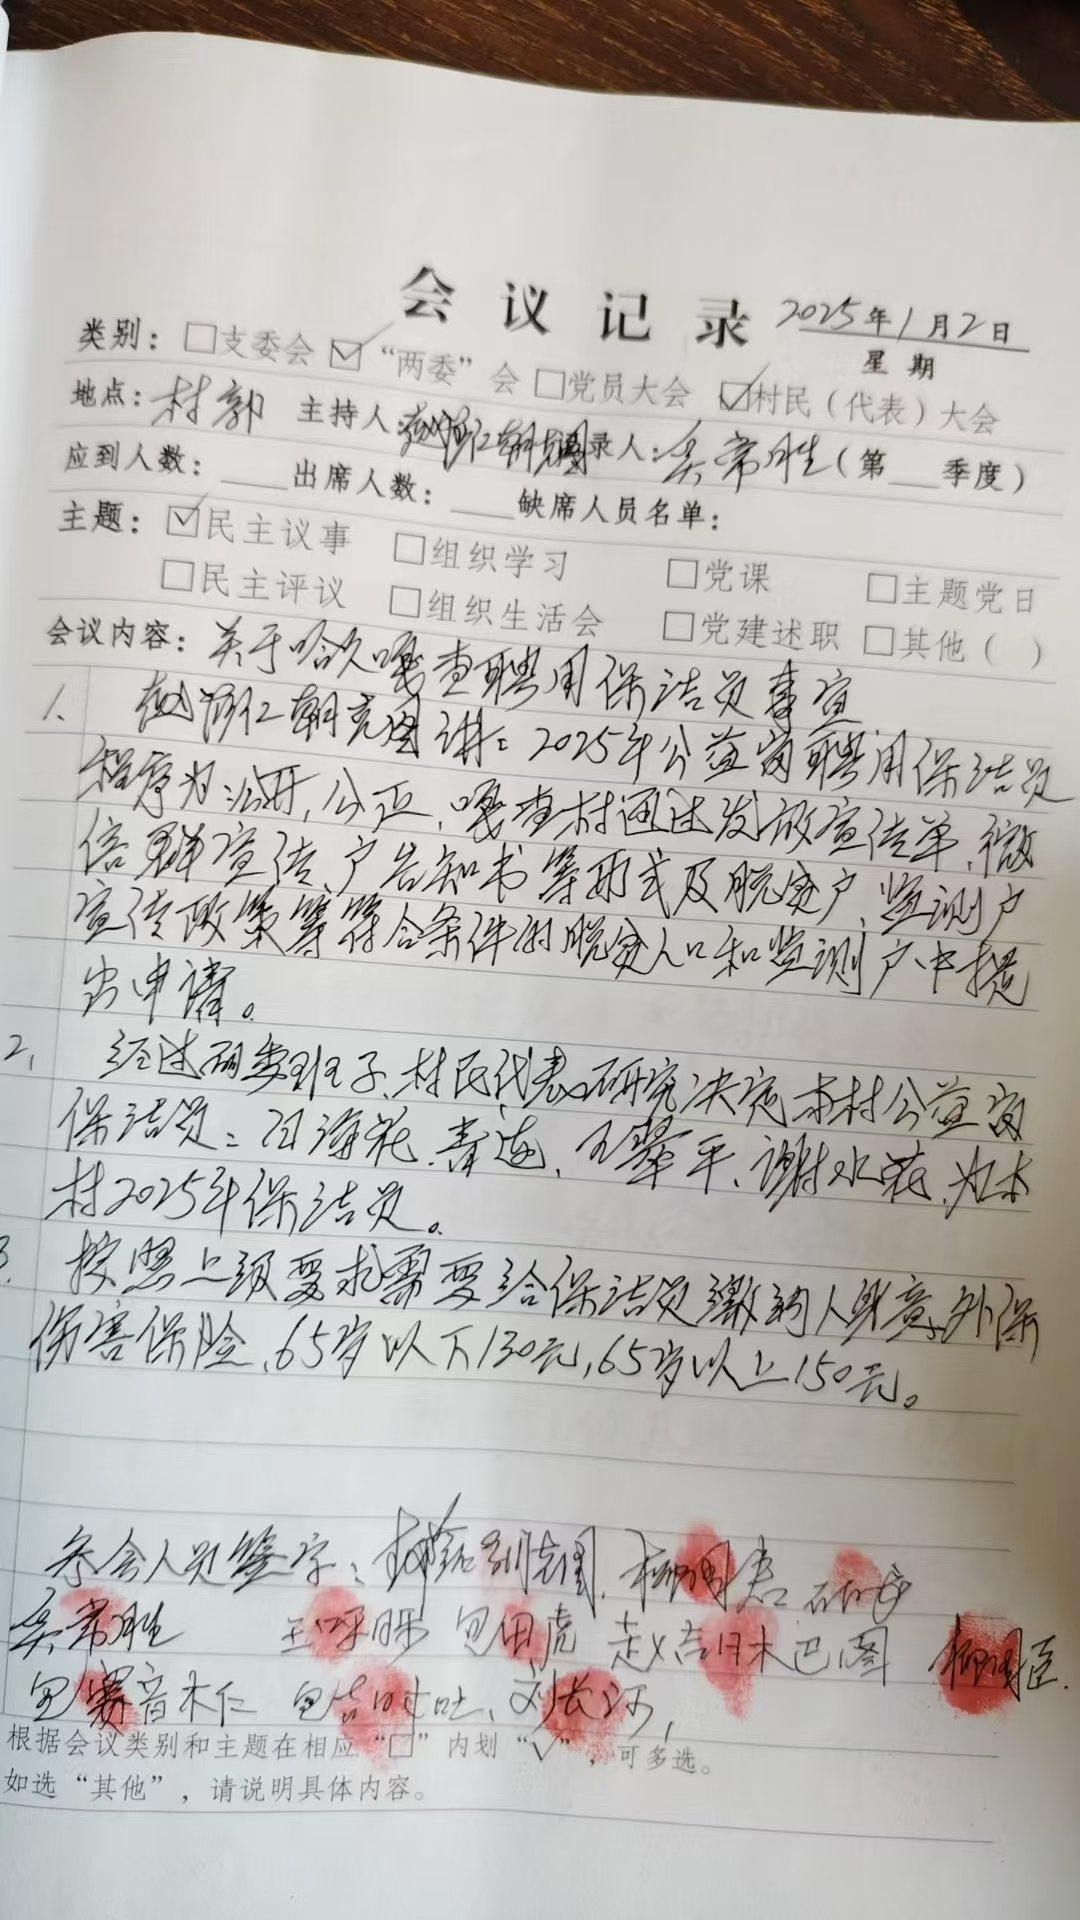 会议记录 2025年1月2日
星期
类别：□支委会 ☑“两委”会 □党员大会 ☑村民（代表）大会
地点：村部 主持人： 仁朝克图 录人：吴常胜（第___季度）
应到人数：____出席人数：____缺席人员名单：
主题：☑民主议事 □组织学习 □党课 □主题党日
□民主评议 □组织生活会 □党建述职 □其他（ ）
会议内容：关于哈久嘎查聘用保洁员事宜
1、 仁朝克图讲：2025年公益岗聘用保洁员
程序为：公开，公正，嘎查村通过发放宣传单、微
信群宣传、户告知书等形式及脱贫户、监测户
宣传政策等符合条件的脱贫人口和监测户中提
出申请。
2、 经过两委班子、村民代表研究决定本村公益岗
保洁员：海花、青莲、王翠平、谢水花，为本
村2025年保洁员。
3. 按照上级要求需要给保洁员缴纳人身意外保
伤害保险，65岁以下130元，65岁以上150元。
参会人员签字：
吴常胜 包田虎 赵吉日木巴图
包赛音木仁 刘长河，
根据会议类别和主题在相应“□”内划“√”，可多选。
如选“其他”，请说明具体内容。